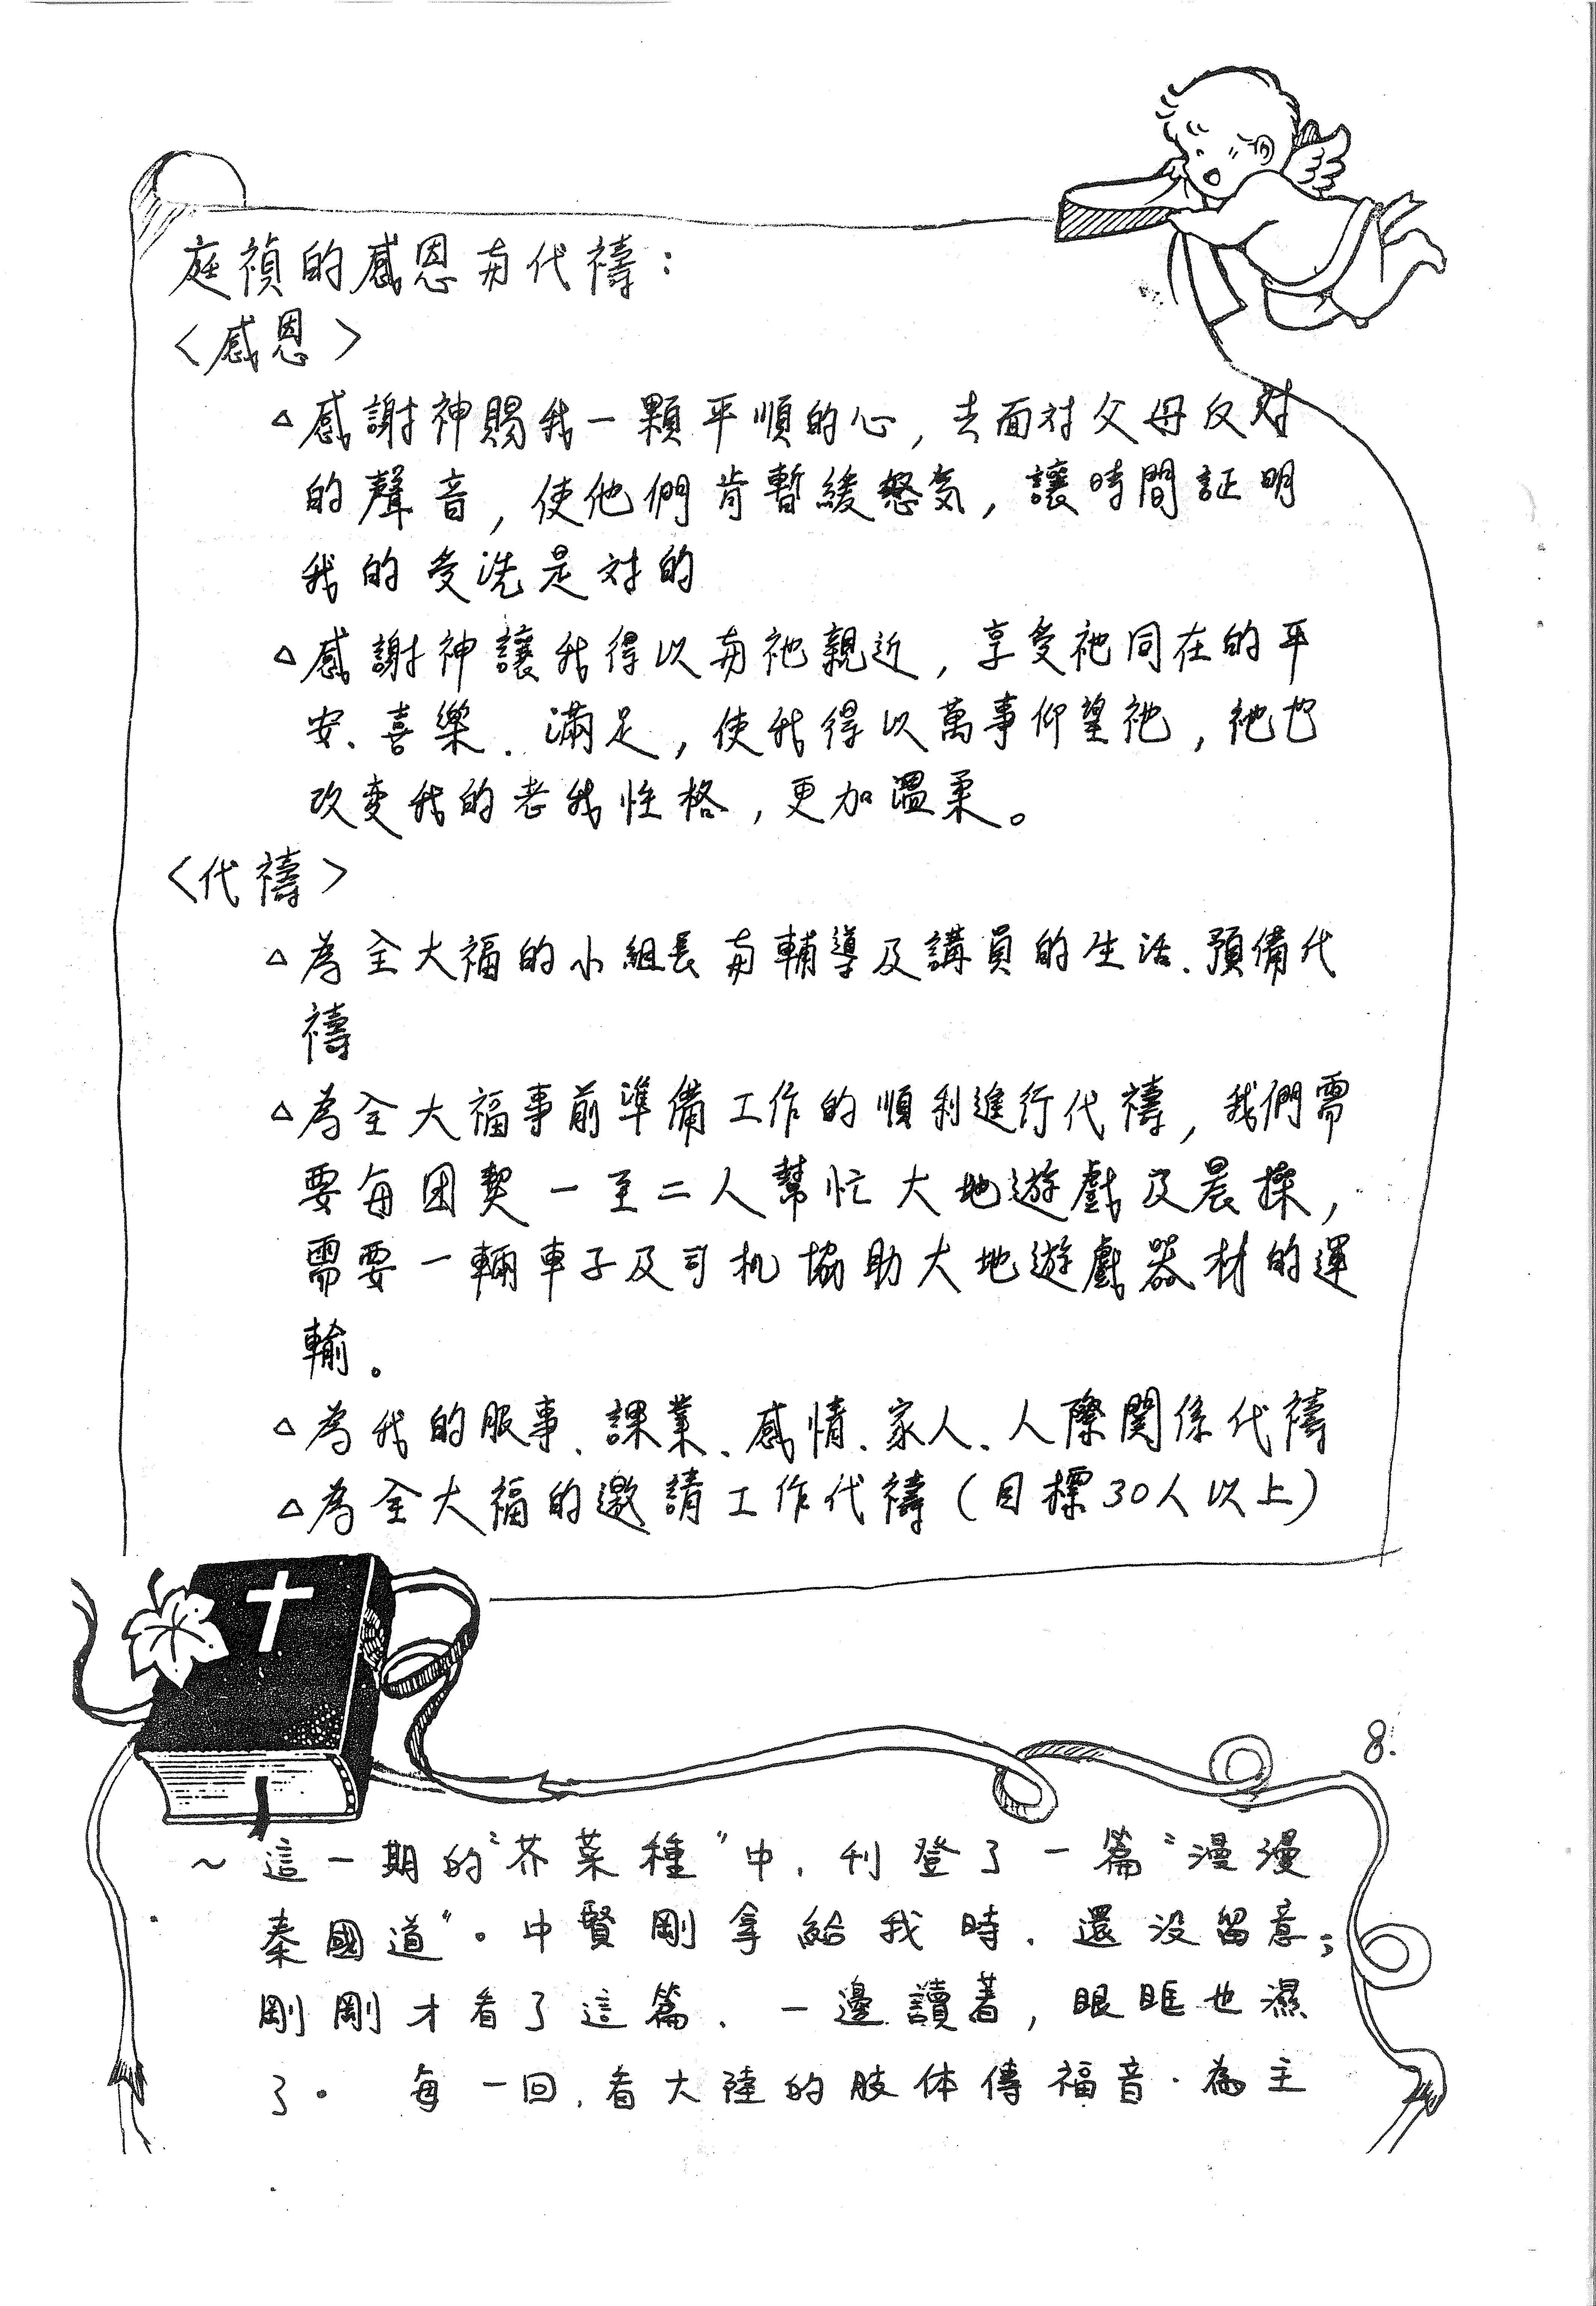 庭禎的感恩与代禱：
〈感恩〉
△感謝神賜我一顆平順的心，去面对父母反对
的聲音，使他們肯暫緩怒気，讓時間証明
我的受洗是对的
△感謝神讓我得以与祂親近，享受祂同在的平
安、喜樂、滿足，使我得以萬事仰望祂，祂也
改变我的老我性格，更加溫柔。
〈代禱〉
△為全大福的小組長与輔導及講員的生活、預備代
禱
△為全大福事前準備工作的順利進行代禱，我們需
要每团契一至二人幫忙大地遊戲及晨操，
需要一輛車子及司机協助大地遊戲器材的運
輸。
△為我的服事、課業、感情、家人、人際関係代禱
△為全大福的邀請工作代禱（目標30人以上）
8.
～這一期的〝芥菜種〞中，刊登了一篇〝漫漫
秦國道〞。中賢剛拿給我時，還没留意；
剛剛才看了這篇，一邊讀著，眼眶也濕
了。每一回，看大陸的肢体傳福音，為主